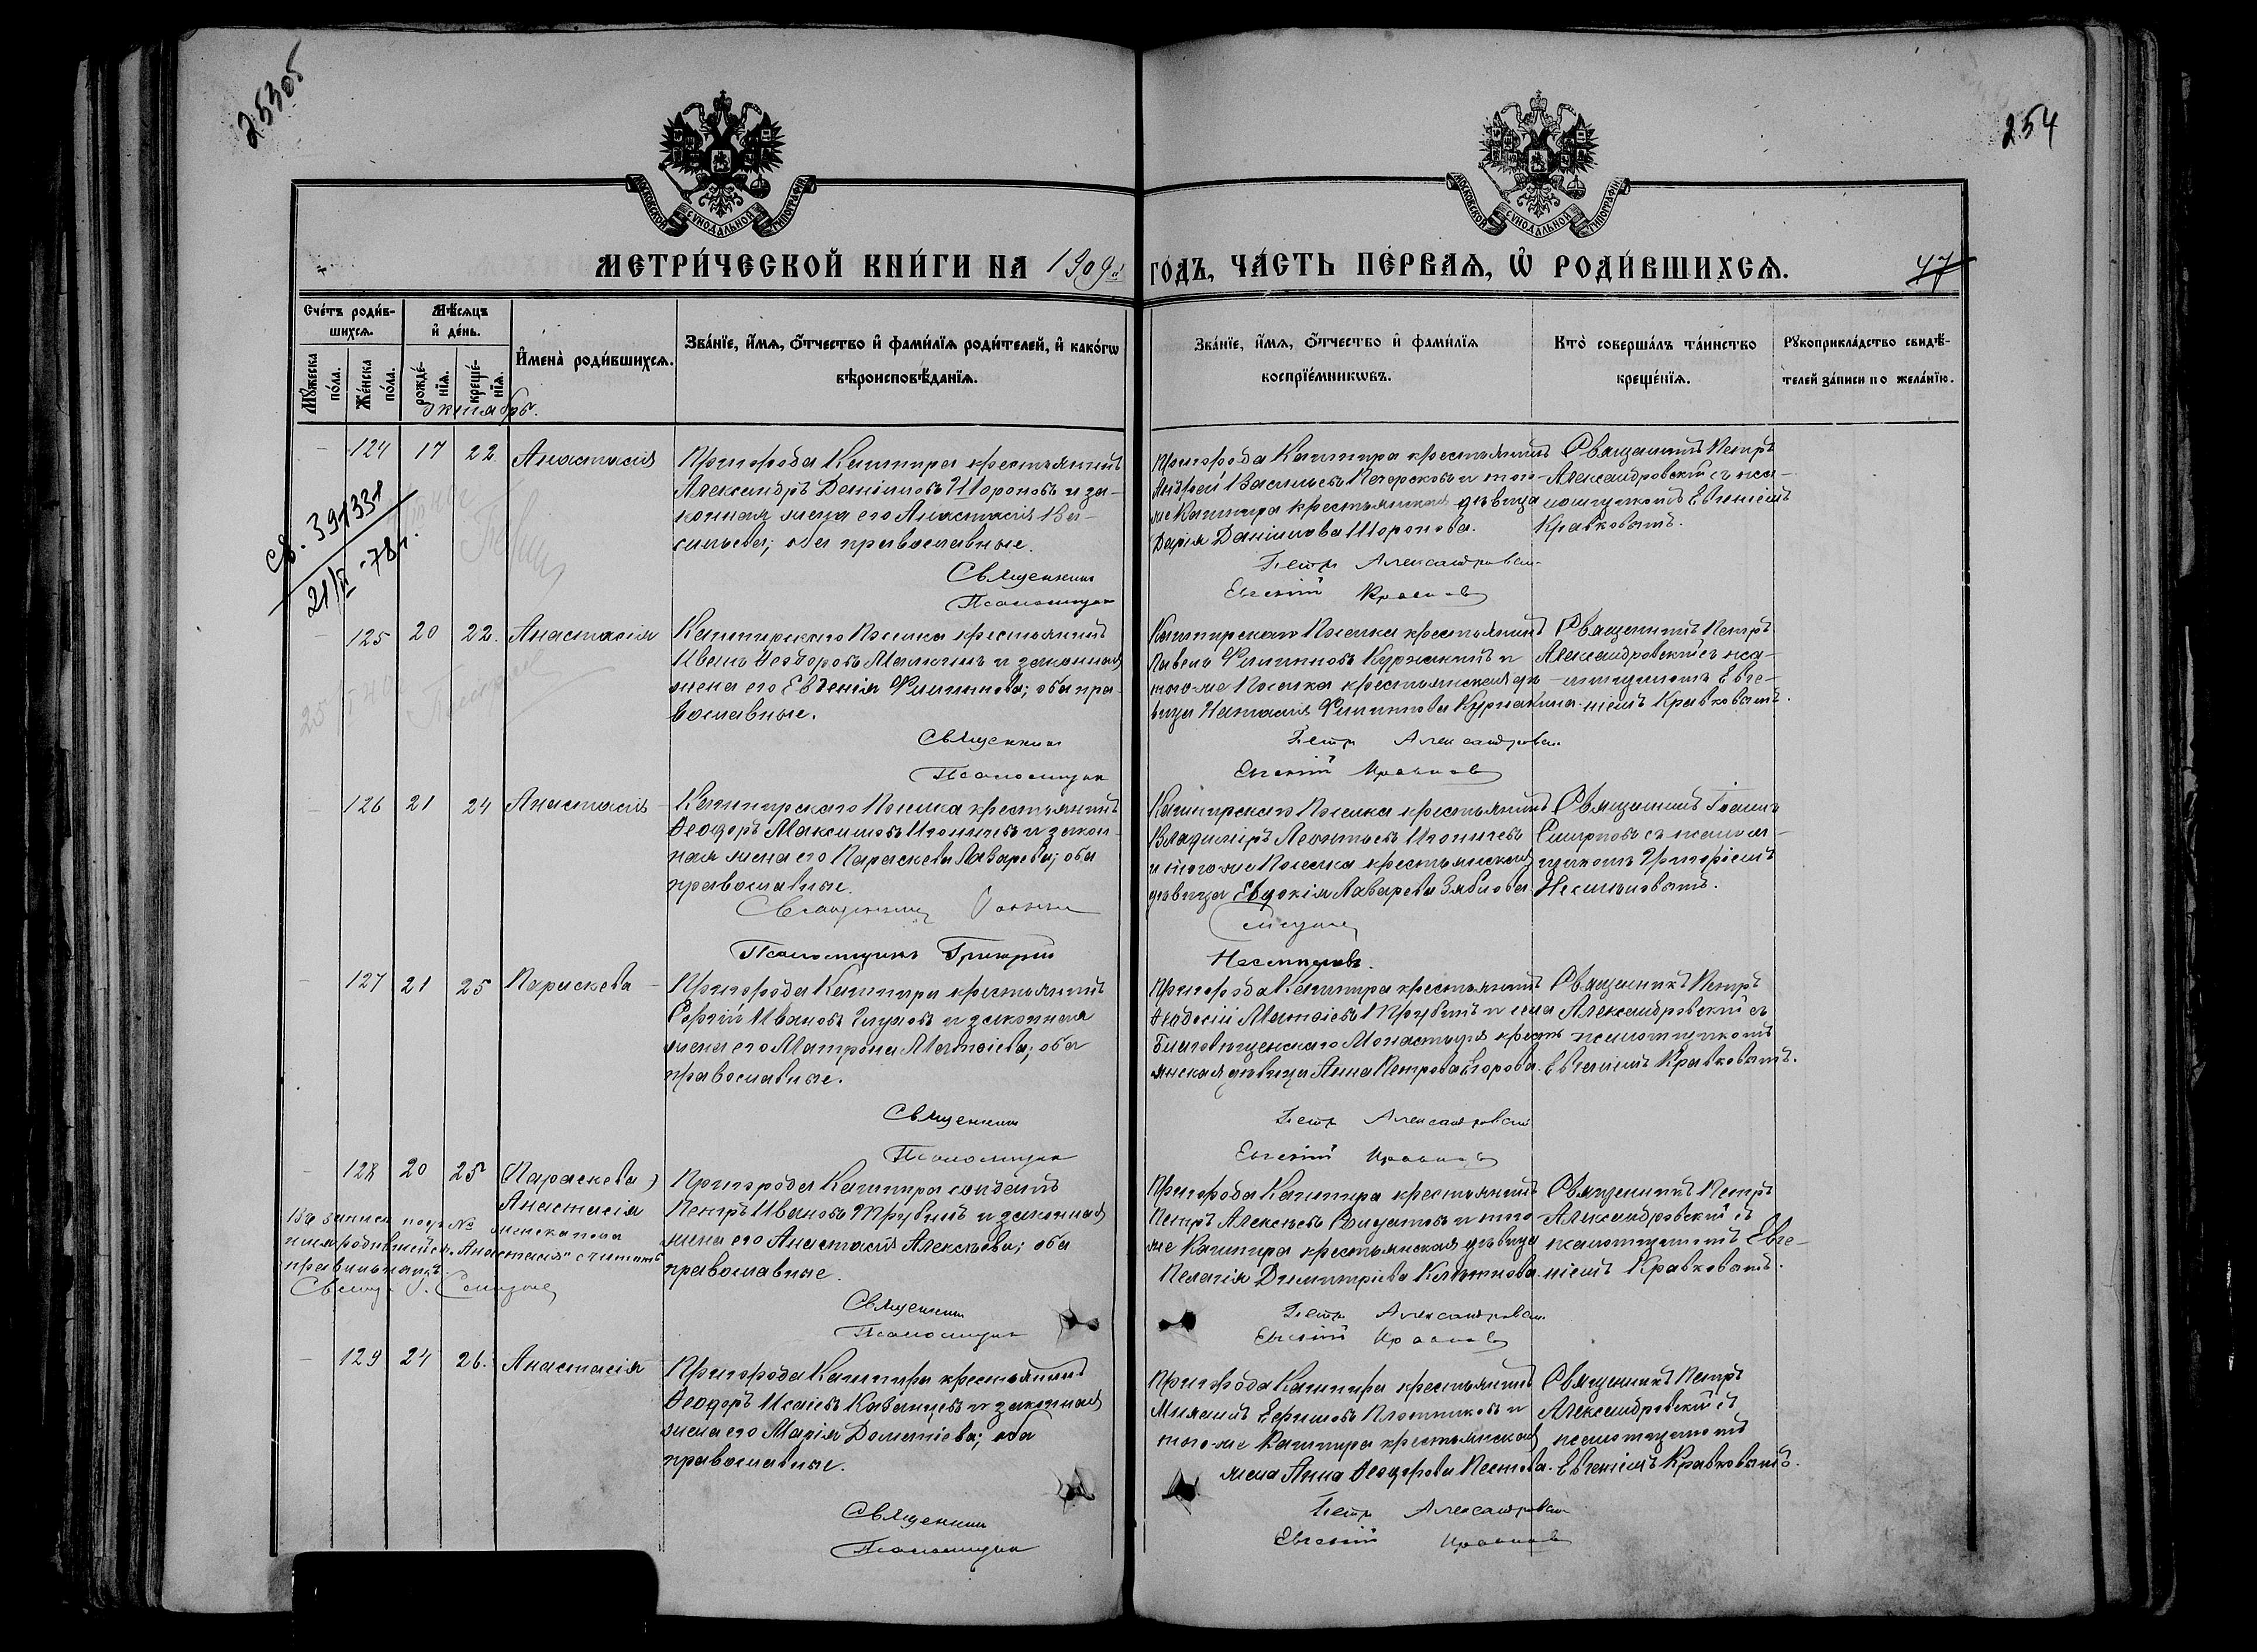 253об
254
МОСКОВСКОЙ СѴНОДАЛЬНОЙ ТИПОГРАФІИ
МОСКОВСКОЙ СѴНОДАЛЬНОЙ ТИПОГРАФІИ
МЕТРИ́ЧЕСКОЙ КНИ́ГИ НА 1909й
ГО́ДЪ, ЧА́СТЬ ПЕ́РВАѦ, Ѡ҆ РОДИ́ВШИХСѦ.
47
Сче́тъ роди́в-
шихсѧ.
Мꙋ́жеска
по́ла.
Же́нска
по́ла.
Мѣ́сѧцъ
и҆ де́нь.
рожде́-
нїѧ.
креще́-
нїѧ.
И҆мена̀ роди́вшихсѧ.
Зва́нїе, и҆́мѧ, ѻ҆́тчество и҆ фами́лїѧ роди́телей, и҆ како́гѡ
вѣроисповѣ́данїѧ.
Зва́нїе, и҆́мѧ, ѻ҆́тчество и҆ фами́лїѧ
воспрїе́мникѡвъ.
Кто̀ соверша́лъ та́инство
креще́нїѧ.
Рꙋкоприкла́дство свидѣ́-
телей за́писи по жела́нїю.
Октябрь.
124 17 22 Анастасія
Пригорода Каштира крестьянинъ
Александръ Даніиловъ Шороновъ и за-
конная жена его Анастасія Ва-
сильева; оба православные.
Священник
Псаломщик
Пригорода Каштира крестьянинъ
Андрей Васильевъ Печерсковъ и того-
же Каштира крестьянская дѣвица
Дарія Даніилова Шоронова.
Петр Александровский
Евгений Кравков
Священникъ Петръ
Александровскій съ пса-
ломщикомъ Евгеніемъ
Кравковымъ.
Св. 391331
21/II-78г.
125 20 22. Анастасія
Каштирскаго Поселка крестьянинъ
Иванъ Ѳеодоровъ Малютинъ и законная
жена его Евгенія Филиппова; оба пра-
вославные.
Священник
Псаломщик
Каштирскаго Поселка крестьянинъ
Павелъ Филипповъ Курнакинъ и
того-же Поселка крестьянская дѣ-
вица Наталія Филиппова Курнакина.
Петр Александровский
Евгений Кравков
Священникъ Петръ
Александровскій съ пса-
ломщикомъ Евге-
ніемъ Кравковымъ.
126 21 24 Анастасія
Каштирскаго Поселка крестьянинъ
Ѳеодоръ Максимовъ Игониче́въ и закон-
ная жена его Параскева Лазарева; оба
православные.
Священник Иоанн
Псаломщикъ Григорий
Каштирскаго Поселка крестьянинъ
Владиміръ Леонтьевъ Игоничевъ
и того-же Поселка крестьянская
дѣвица Евдокія Лазарева Зяблова.
Смирнов
Несмѣяновъ.
Священникъ Іоаннъ
Смирновъ съ псалом-
щикомъ Григоріемъ
Несмѣяновымъ.
127 21 25 Параскева
Пригорода Каштира крестьянинъ
Сергій Ивановъ Глуховъ и законная
жена его Матрона Матѳіева; оба
православные.
Священник
Псаломщик
Пригорода Каштира крестьянинъ
Ѳеодосій Матѳіевъ Трубинъ и села
Благовѣщенскаго Монастыря кресть-
янская дѣвица Анна Петрова Егорова.
Петр Александровский
Евгений Кравков
Священникъ Петръ
Александровскій съ
псаломщикомъ
Евгеніемъ Кравковымъ.
128 20 25 (Параскева)
Анастасія
Въ записи подъ № женска пола
имя родившейся „Анастасія" считать
правильнымъ.
Свящ. І. Смирнов
Пригорода Каштира солдатъ
Петръ Ивановъ Трубинъ и законная
жена его Анастасія Алексѣева; оба
православные.
Священник
Псаломщик
Пригорода Каштира крестьянинъ
Петръ Алексѣевъ и того
же Каштира крестьянская дѣвица
Пелагія Димитріева
Петр Александровский
Евгений Кравков
Священникъ Петръ
Александровскій съ
псаломщикомъ Евге-
ніемъ Кравковымъ.
129 24 26. Анастасія
Пригорода Каштира крестьянинъ
Ѳеодоръ Исаіевъ Казанцевъ и законная
жена его Марія Дометіева; оба
православные.
Священник
Псаломщик
Пригорода Каштира крестьянинъ
Ефимовъ Плотниковъ и
того-же Каштира крестьянская
жена Анна Ѳеодорова Пестова.
Петр Александровский
Евгений Кравков
Священникъ Петръ
Александровскій съ
псаломщикомъ
Евгеніемъ Кравковымъ.